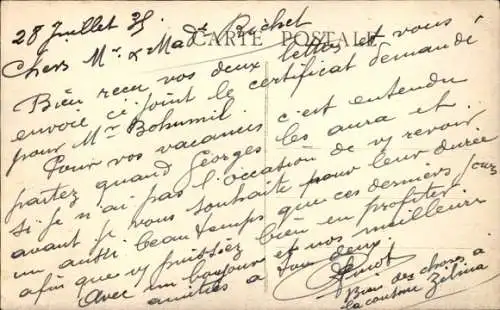 28 Juillet 35
CARTE POSTALE
Chers Mr & Made Buchet
Bien reçu vos deux lettres et vous
envoie ci joint le certificat demandé
pour Mr Bohumil
Pour vos vacances c'est entendu
partez quand Georges les aura et
si je n'ai pas l'occasion de vs revoir
avant je vous souhaite pour leur durée
un aussi beau temps que ces derniers jours
afin que vs puissiez bien en profiter
Avec un bonjour et nos meilleures
amitiés à tous deux.
Bien des choses à
la cousine Zélina